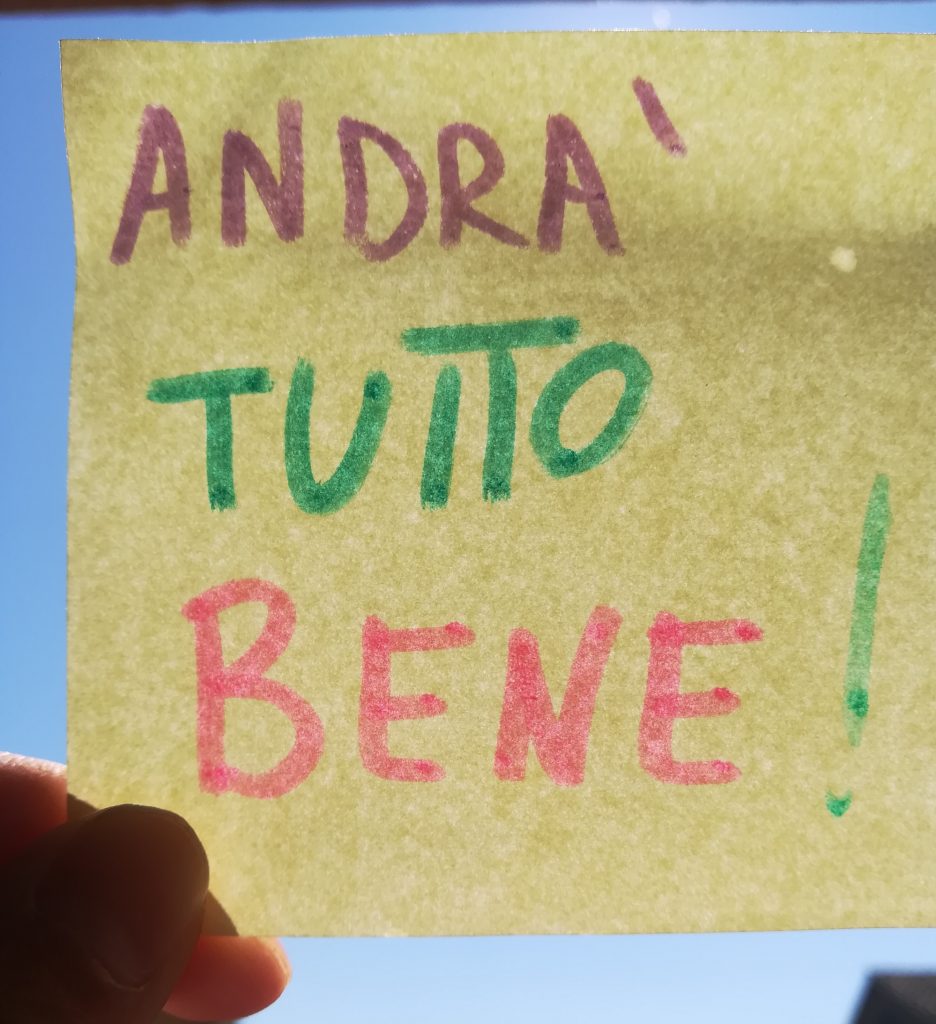 ANDRA`
TUTTO
BENE!